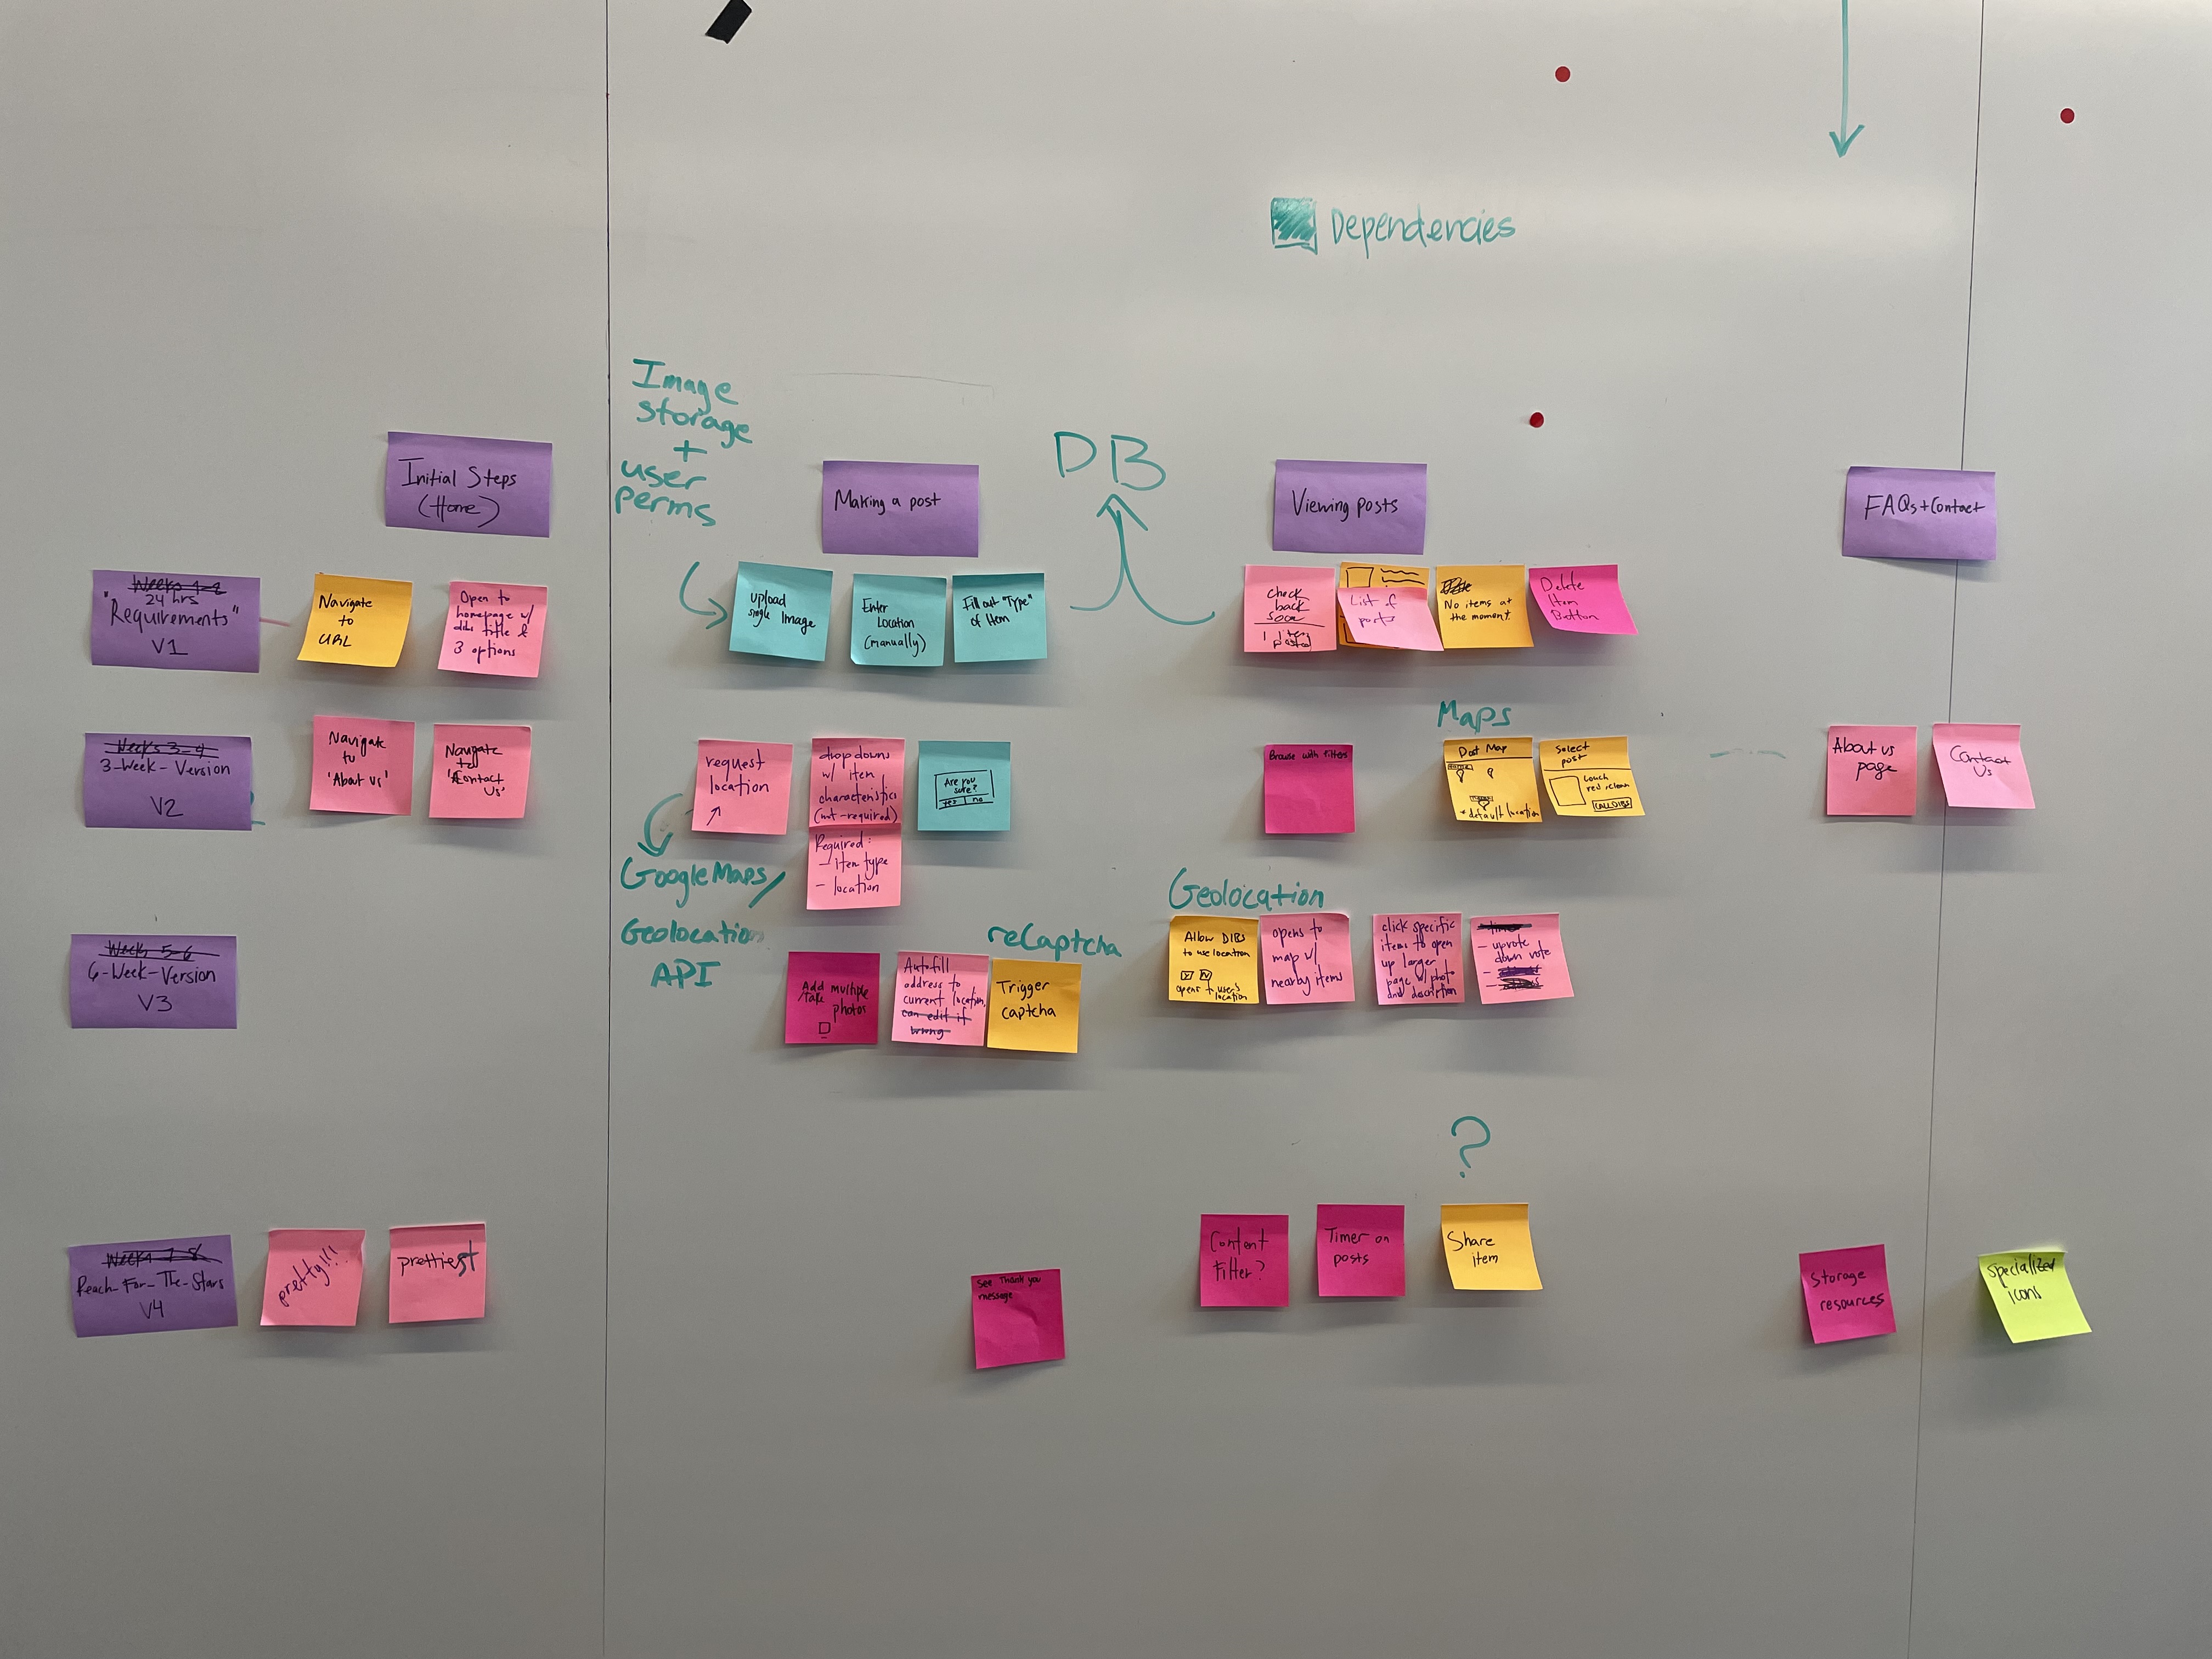 Dependencies
Image
storage
+
user
perms
DB
Initial Steps
(Home)
Making a post
Viewing posts
FAQs+Contact
Weeks 1-2
24 hrs
"Requirements"
V1
Navigate
to
URL
Open to
homepage w/
dibs title &
3 options
upload
single Image
Enter
Location
(manually)
Fill out "Type"
of Item
check
back
soon
List of
posts
No items at
the moment
Delete
Item
Button
Weeks 3-4
3-Week-Version
V2
Navigate
to
'About us'
Navigate
to
'Contact
Us'
request
location
dropdowns
w/ item
characteristics
(not-required)
Required:
- item type
- location
Are you
sure?
yes no
Browse with filters
Maps
Post Map
* default location
Select
post
couch
red, clean
CALL DIBS
About us
page
Contact
Us
Google Maps/
Geolocation
API
Weeks 5-6
6-Week-Version
V3
Add multiple
/take photos
Autofill
address to
current location,
can edit if
wrong
reCaptcha
Trigger
captcha
Geolocation
Allow DIBS
to use location
Y N
opens to user's
location
opens to
map w/
nearby items
click specific
items to open
up larger
page w/ photo
and description
- upvote
down vote
Weeks 7-8
Reach-For-The-Stars
V4
pretty!!!
prettiest
see Thank you
message
Content
Filter?
Timer on
posts
?
Share
item
Storage
resources
specialized
icons